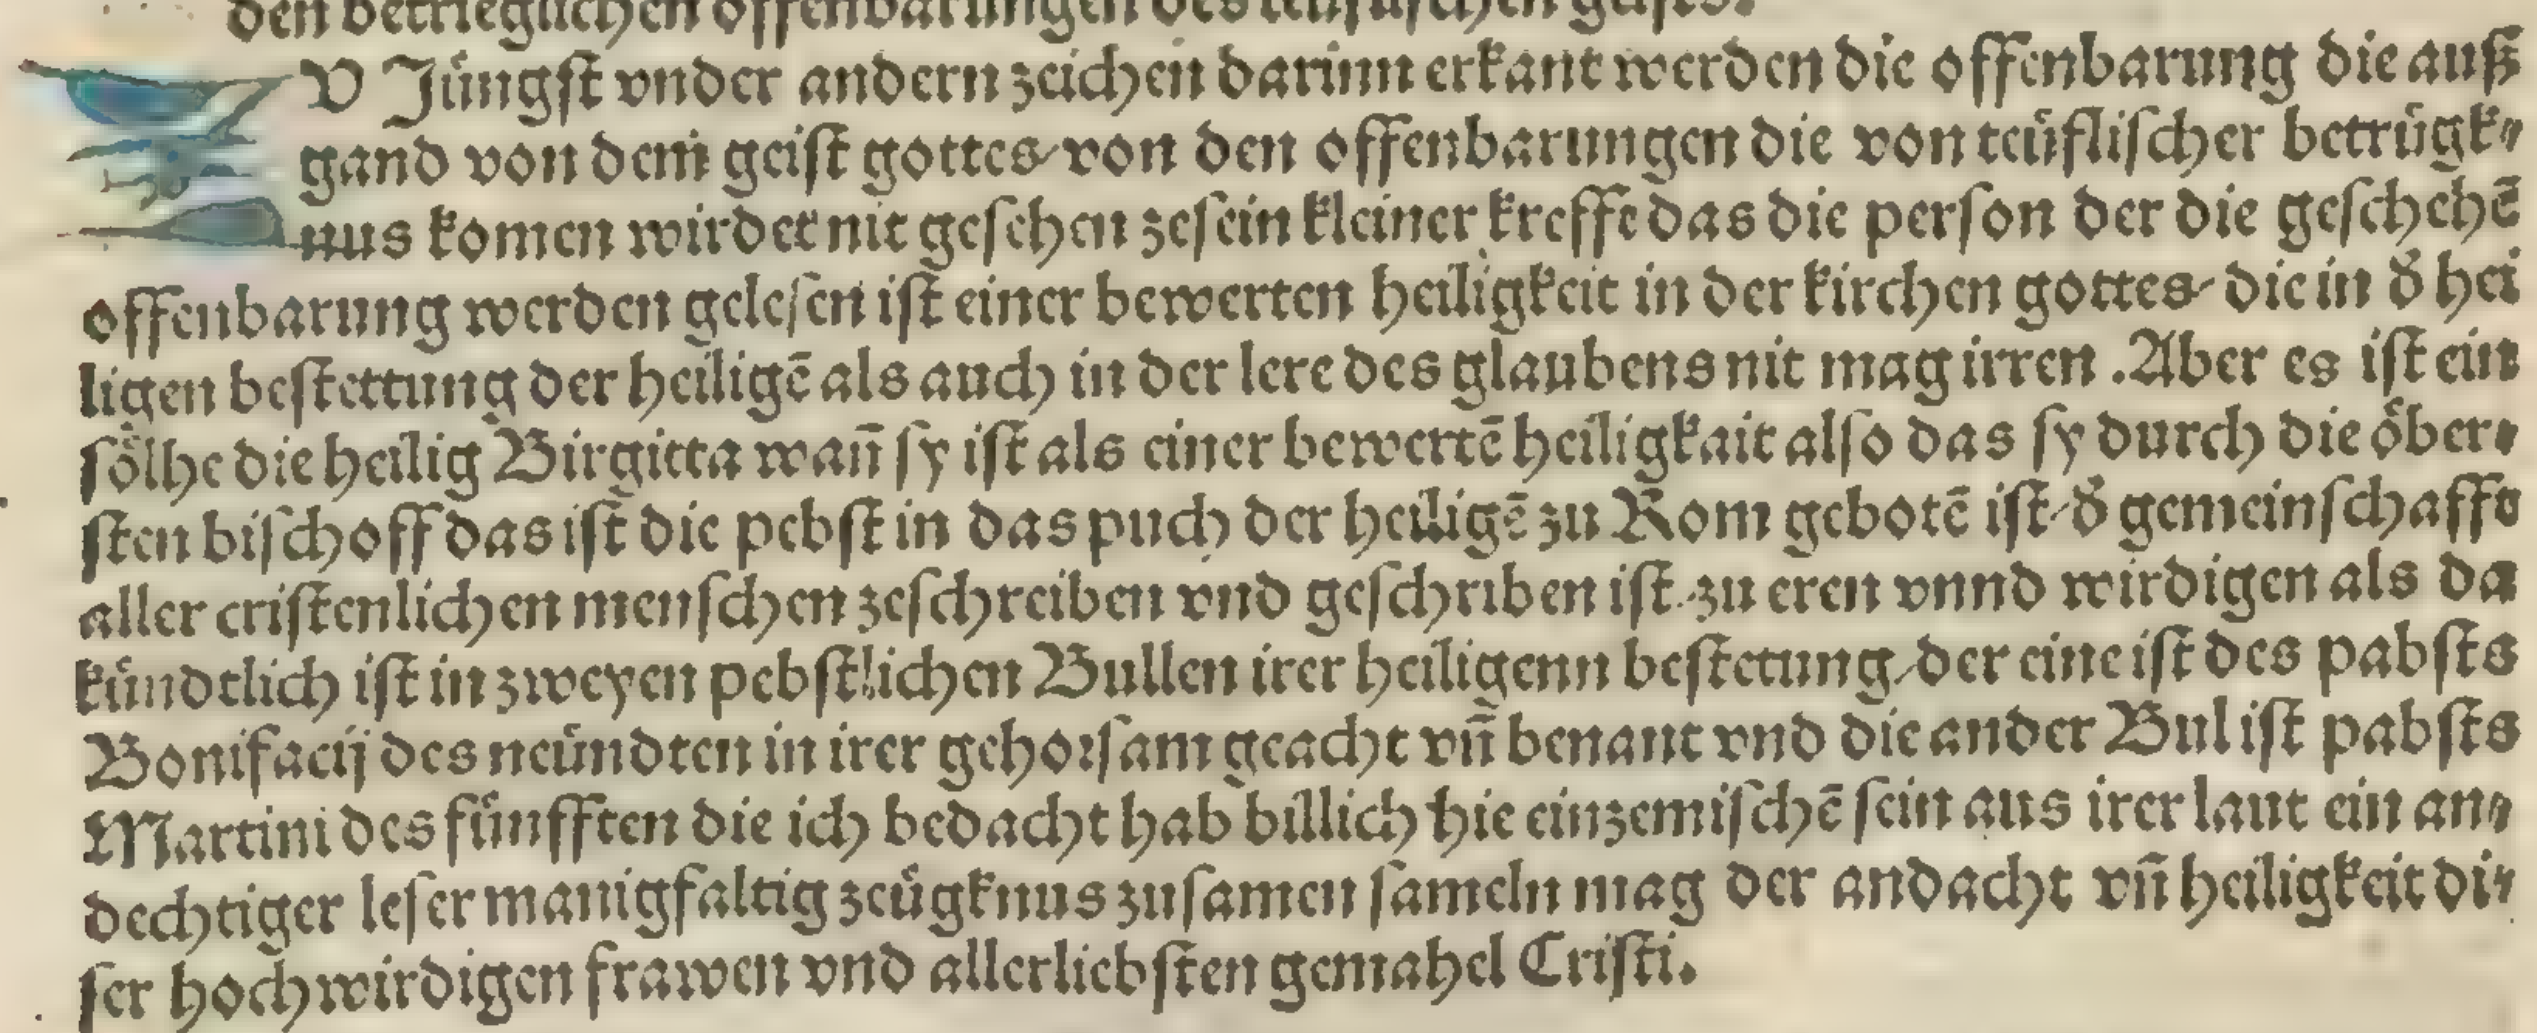 den betrieglichen offenbarungen des teuflischen geists.
ZV Jüngst vnder andern zeichen darinn erkant werden die offenbarung die auß
gand von dem geist gottes/von den offenbarungen die von teüflischer betrügk⸗
nus komen wirdet nit gesehen zesein kleiner kreffte das die person der die geschehē
offenbarung werden gelesen ist einer bewerten heiligkeit in der kirchen gottes/ die in d̕ hei
ligen bestettung der heiligē als auch in der lere des glaubens nit mag irren .Aber es ist ein
sölhe die heilig Birgitta wañ sy ist als einer bewertē heiligkait also das sy durch die öber⸗
sten bischoff das ist die pebst in das puch der heiligē zu Rom gebotē ist/d̕ gemeinschafft
aller cristenlichen menschen zeschreiben vnd geschriben ist/zu eren vnnd wirdigen als da
kündtlich ist in zweyen pebstlichen Bullen irer heiligenn bestetung/der eine ist des pabsts
Bonifacij des neündten in irer gehorsam geacht vñ benant vnd die ander Bul ist pabsts
Martini des fünfften die ich bedacht hab billich hie einzemischē sein aus irer laut ein an⸗
dechtiger leser manigfaltig zeügknus zusamen sameln mag der andacht vñ heiligkeit di⸗
ser hochwirdigen frawen vnd allerliebsten gemahel Cristi.